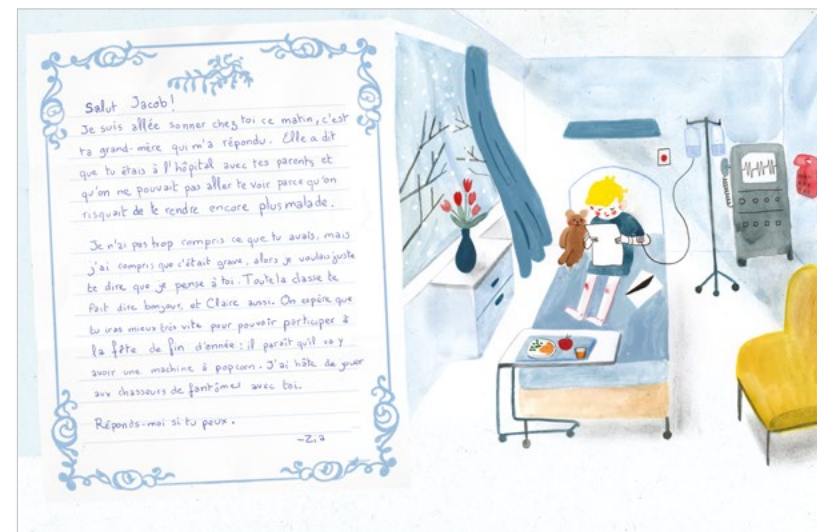 Salut Jacob!
Je suis allée sonner chez toi ce matin, c'est
ta grand-mère qui m'a répondu. Elle a dit
que tu étais à l'hôpital avec tes parents et
qu'on ne pouvait pas aller te voir parce qu'on
risquait de te rendre encore plus malade.
Je n'ai pas trop compris ce que tu avais, mais
j'ai compris que c'était grave, alors je voulais juste
te dire que je pense à toi. Toute la classe te
fait dire bonjour, et Claire aussi. On espère que
tu iras mieux très vite pour pouvoir participer à
la fête de fin d'année : il paraît qu'il va y
avoir une machine à popcorn. J'ai hâte de jouer
aux chasseurs de fantômes avec toi.
Réponds-moi si tu peux.
-Zia